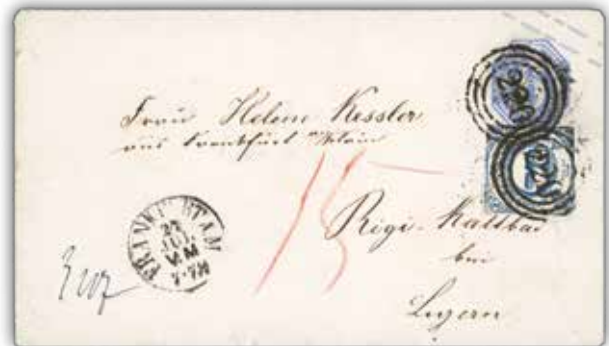 Frau Helene Kessler
aus Frankfurt a/Main
15
Rigi-Kaltbad
bei
Luzern
FRANKFURT A.M.
25
JUL
220
220